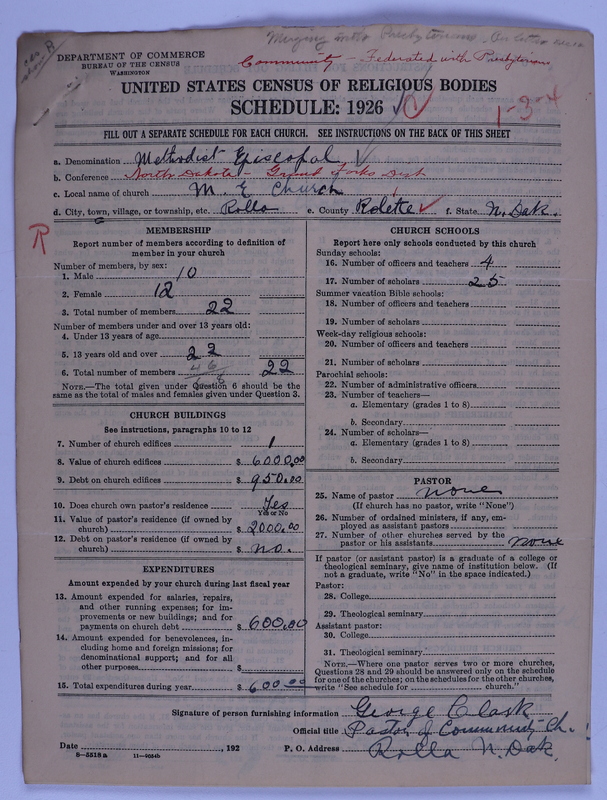 Merging with Presbyterians
DEPARTMENT OF COMMERCE
BUREAU OF THE CENSUS
WASHINGTON
Community - Federated with Presbyterians
UNITED STATES CENSUS OF RELIGIOUS BODIES
SCHEDULE: 1926
1-3-4
FILL OUT A SEPARATE SCHEDULE FOR EACH CHURCH. SEE INSTRUCTIONS ON THE BACK OF THIS SHEET
a. Denomination Methodist Episcopal
b. Conference North Dakota - Grand Forks Dist
c. Local name of church M. E Church
d. City, town, village, or township, etc. Rolla e. County Rolette f. State N. Dak.
R
MEMBERSHIP
Report number of members according to definition of
member in your church
Number of members, by sex:
1. Male 10
2. Female 12
3. Total number of members 22
Number of members under and over 13 years old:
4. Under 13 years of age
5. 13 years old and over 22
6. Total number of members 22
NOTE.—The total given under Question 6 should be the
same as the total of males and females given under Question 3.
CHURCH BUILDINGS
See instructions, paragraphs 10 to 12
7. Number of church edifices 1
8. Value of church edifices $ 6000.00
9. Debt on church edifices $ 950.00
10. Does church own pastor's residence Yes
Yes or No
11. Value of pastor's residence (if owned by
church) $ 2000.00
12. Debt on pastor's residence (if owned by
church) $ no.
EXPENDITURES
Amount expended by your church during last fiscal year
13. Amount expended for salaries, repairs,
and other running expenses; for im-
provements or new buildings; and for
payments on church debt $ 600.00
14. Amount expended for benevolences, in-
cluding home and foreign missions; for
denominational support; and for all
other purposes $
15. Total expenditures during year $ 600.00
CHURCH SCHOOLS
Report here only schools conducted by this church
Sunday schools:
16. Number of officers and teachers 4
17. Number of scholars 25
Summer vacation Bible schools:
18. Number of officers and teachers
19. Number of scholars
Week-day religious schools:
20. Number of officers and teachers
21. Number of scholars
Parochial schools:
22. Number of administrative officers
23. Number of teachers—
a. Elementary (grades 1 to 8)
b. Secondary
24. Number of scholars—
a. Elementary (grades 1 to 8)
b. Secondary
PASTOR
25. Name of pastor none
(If church has no pastor, write "None")
26. Number of ordained ministers, if any, em-
ployed as assistant pastors
27. Number of other churches served by the
pastor or his assistants none
If pastor (or assistant pastor) is a graduate of a college or
theological seminary, give name of institution below. (If
not a graduate, write "No" in the space indicated.)
Pastor:
28. College
29. Theological seminary
Assistant pastor:
30. College
31. Theological seminary
NOTE.—Where one pastor serves two or more churches,
Questions 28 and 29 should be answered only on the schedule
for one of the churches; on the schedules for the other churches,
write "See schedule for church."
Signature of person furnishing information George Clark
Official title Pastor of Community Ch.
Date , 192 P. O. Address Rolla N. Dak.
8—5518a 11—9054b